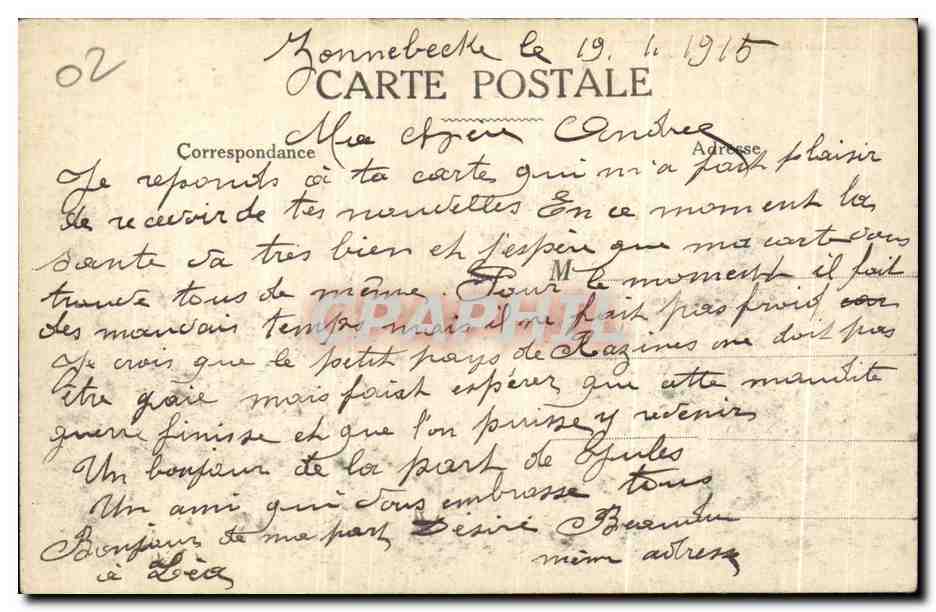 02
Zonnebecke le 19. 1. 1915
CARTE POSTALE
Ma chère Andrée
Correspondance
Adresse
Je reponds à ta carte qui m'a fait plaisir
de recevoir de tes nouvelles En ce moment la
sante va très bien et j'espère que ma carte vous
trouve tous de même Pour le moment il fait
M
des mauvais temps mais il ne fait pas froid
CPAPHIL
Je crois que le petit pays de Razines ne doit pas
être gaie mais faut espérer que cette maudite
guerre finisse et que l'on puisse y revenir
Un bonjour de la part de Jules
Un ami qui vous embrasse tous
Bonjour de ma part Desiré
à Léa
même adresse